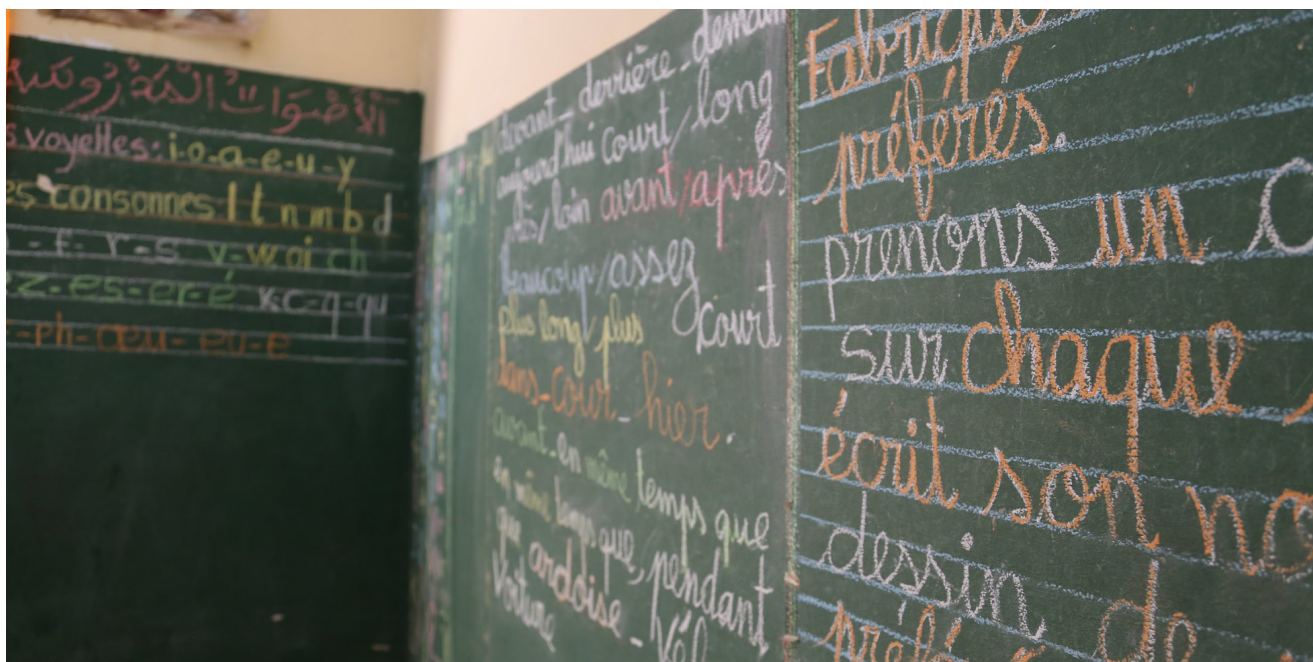 الأَصْوَاتُ المَدْرُوسَة
s voyelles: i-o-a-e-u-y
es consonnes l t n m b d
-f-r-s v-w oi ch
ez-es-er-é k-c-q-qu
-ph-œu-eu-e
devant_derrière_demain
aujourd'hui court/long
près/loin avant/après
Beaucoup/assez
plus long/plus court
dans-cour-hier.
avant_en même temps que
en même temps que, pendant
que ardoise_Vél
Voiture
Fabriqu
préférés.
prenons un
sur chaque
écrit son no
dessin de
préfé